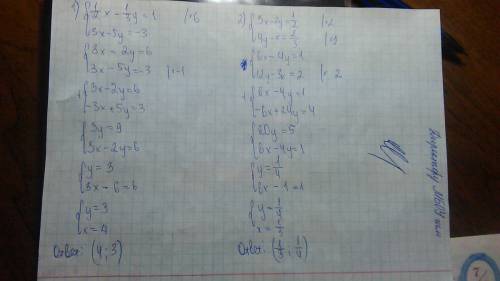 1) { 1/2 x - 1/3 y = 1 |·6
3x - 5y = -3
{ 3x - 2y = 6
3x - 5y = -3 |·-1
+ { 3x - 2y = 6
-3x + 5y = 3
{ 3y = 9
3x - 2y = 6
{ y = 3
3x - 6 = 6
{ y = 3
x = 4
Ответ: (4; 3)
2) { 3x - 2y = 1/2 |·2
4y - x = 2/3 |·3
{ 6x - 4y = 1
12y - 3x = 2 |· 2
+ { 6x - 4y = 1
-6x + 24y = 4
{ 20y = 5
6x - 4y = 1
{ y = 1/4
6x - 1 = 1
{ y = 1/4
x = 1/3
Ответ: (1/3; 1/4)
7/